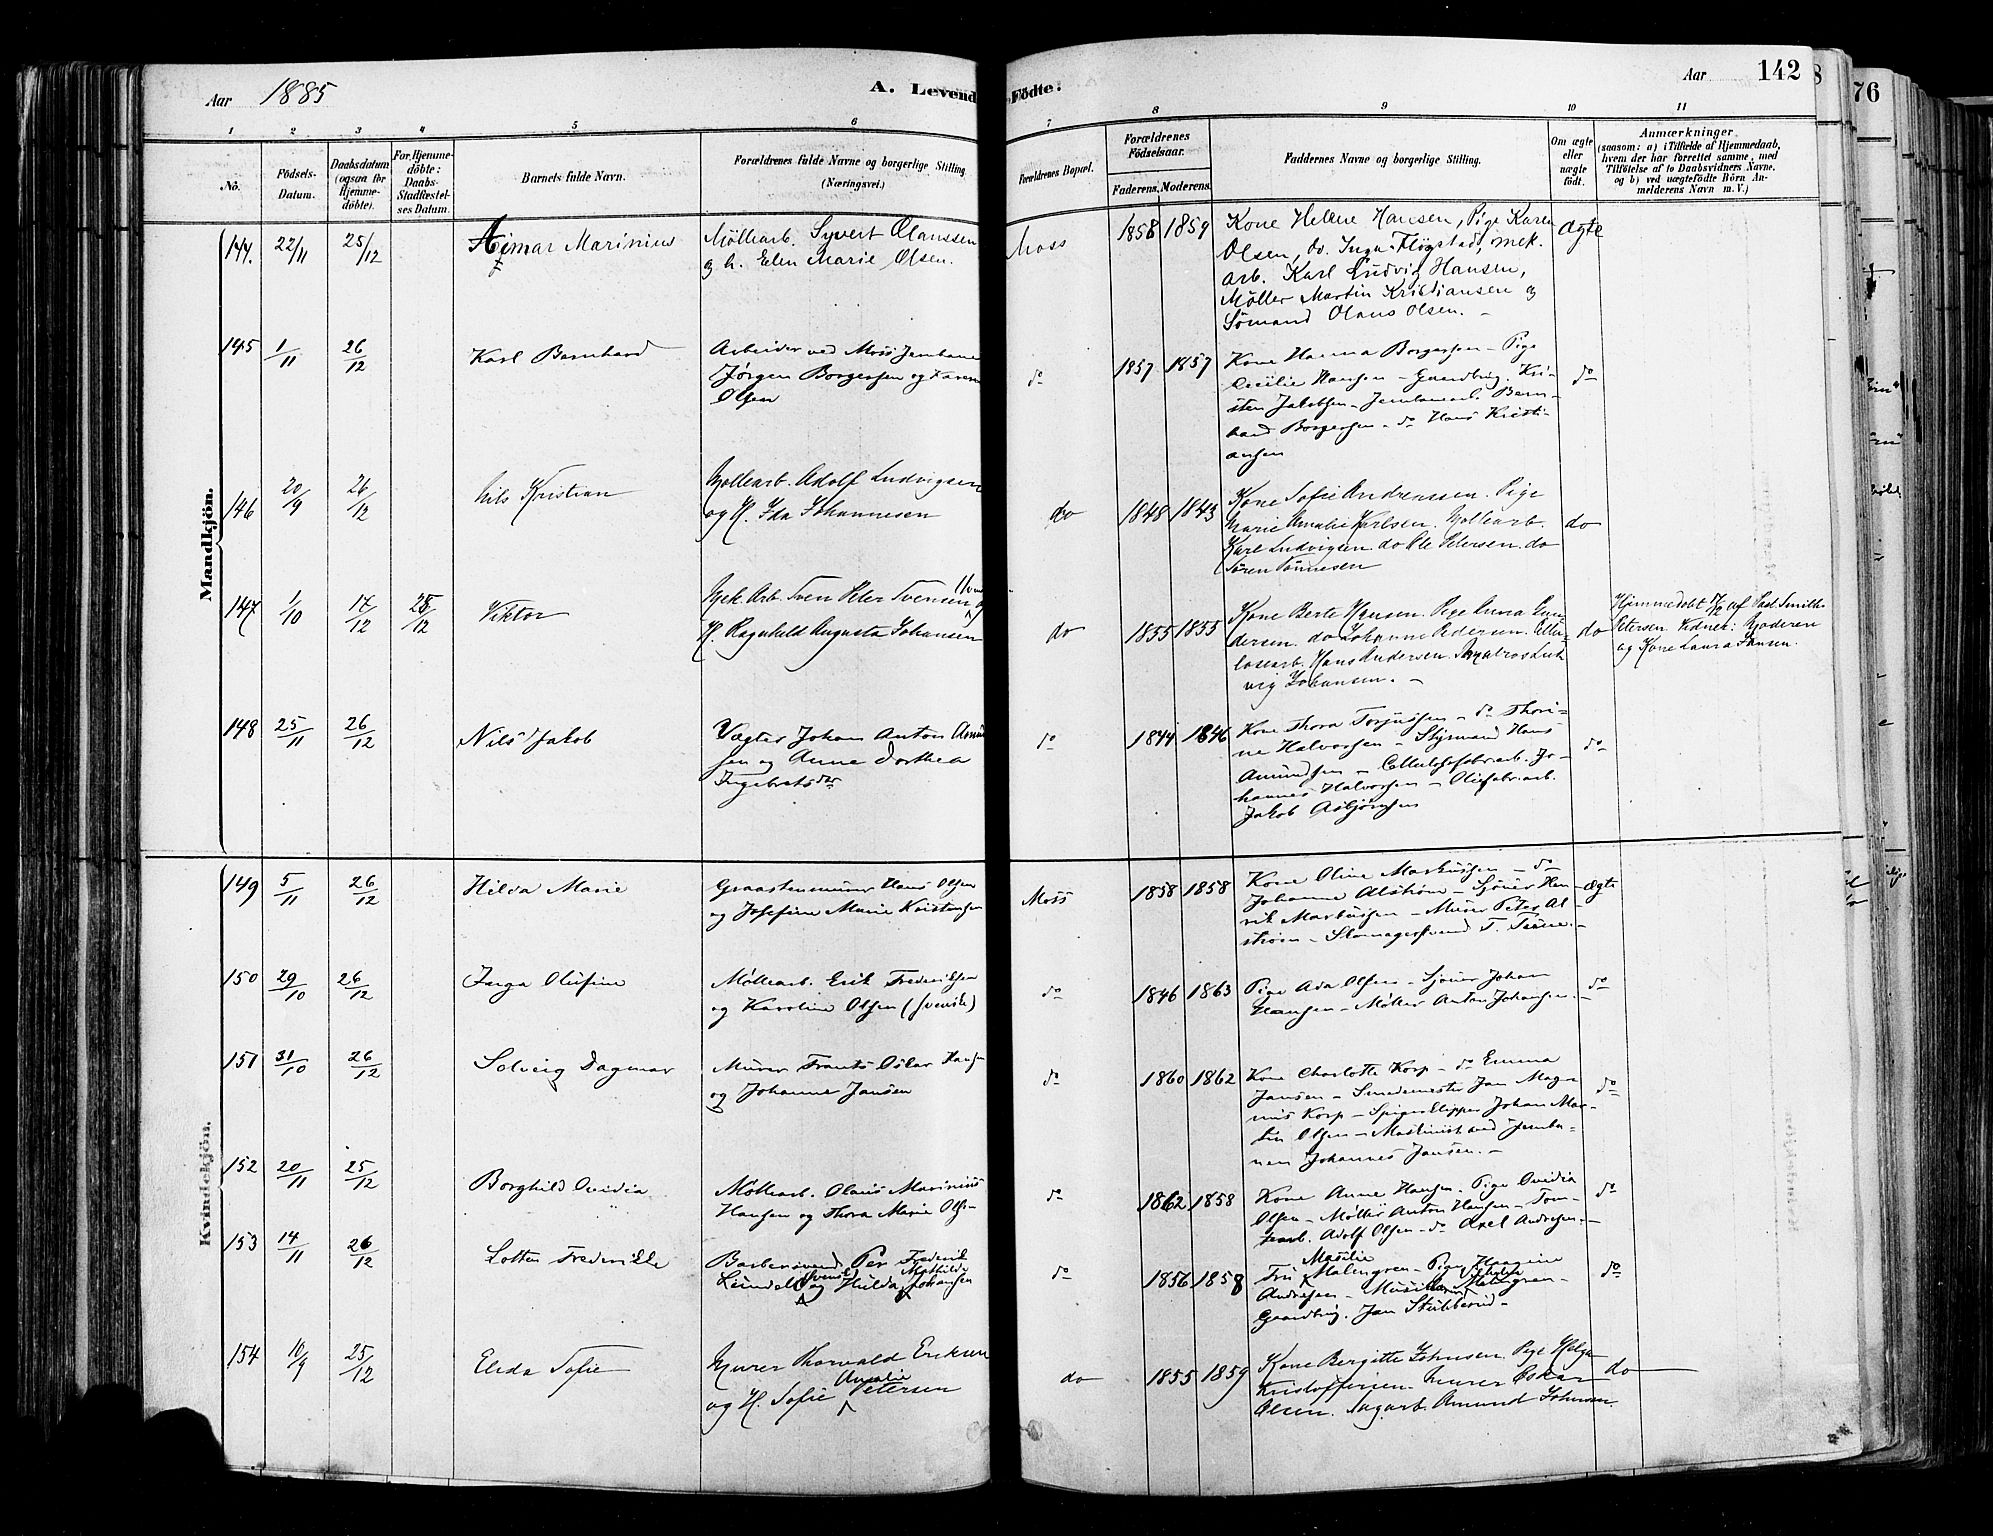 Aar 1885
A. Levende
Födte.
Aar 142
8
76
1 2 3 4 5 6 7 8 9 10 11
No.
Födsels-
Datum.
Daabsdatum
(ogsaa for
Hjemme-
döbte).
For Hjemme-
döbte:
Daabs-
Stadfæstel-
ses Datum
Barnets fulde Navn.
Forældrenes fulde Navne og borgerlige Stilling
(Næringsvei.)
Forældrenes Bopæl.
Forældrenes
Födselsaar.
Faderens. Moderens.
Faddernes Navne og borgerlige Stilling.
Om ægte
eller
uægte
födt.
Anmærkninger
(saasom: a) i Tilfælde af Hjemmedaab,
hvem der har forrettet samme, med
Tilföielse af to Daabsvidners Navne.
og b) ved uægtefödte Börn An-
melderens Navn m. V.)
Mandkjön.
144. 22/11 25/12 Marinius
Møllearb. Syvert Olanssen
og h. Elen Marie Olsen.
Moss 1858 1859
Kone Helene Hansen, Pige Karen
Olsen, do. Inga Fløgstad, mek.
arb. Karl Ludvig Hansen,
Møller Martin Kristiansen og
Sømand Olaus Olsen.
ægte
145 1/11 26/12 Karl Bernhard
Arbeider ved Moss Jernbane
Jørgen Borgersen og Karen
Olsen
do 1857 1857
Kone Hanna Borgersen – Pige
Cecilie Hansen – Gaardbrug. Kri-
sten Jakobsen – Jernbanearb. Bern-
hard Borgersen – do Hans Kristi-
ansen
do
146 20/9 26/12 Nils Kristian
Møllearb. Adolf Ludvigsen
og H. Ida Johannesen
do 1848 1843
Kone Sofie Andreassen. Pige
Marie Amalie Karlsen. Møllearb.
Karl Ludvigsen. do Ole Petersen. do
Søren Tønnesen
do
147 1/10 17/12 25/12 Viktor
Mek. Arb. Sven Peter Svensen
H. Ragnhild Augusta Johansen
do 1855 1855
Kone Berte Hansen. Pige Anna Gun-
dersen. do Johanne Pedersen. Cellu-
losearb. Hans Andersen. Matros Lud-
vig Johansen.
do
Hjemmedøbt 17/12 af Past. Smith-
Petersen Vidner: Moderen
og Kone Laura Hansen.
148 25/11 26/12 Nils Jakob
Vægter Johan Anton Amund-
sen og Anne Dorthea
Ingebretsdr
do 1844 1846
Kone Thora Torjussen – do Thori-
ne Halvorsen – Styrmand Hans
Amundsen – Cellulosefabr.arb. Jo-
hannes Halvorsen – Oliefabr.arb.
Jakob Asbjørnsen
do
Kvindekjön.
149 5/11 26/12 Hilda Marie
Graastensmurer Hans Olsen
og Josefine Marie Kristiansen
Moss 1858 1858
Kone Oline Markussen – do
Johanne Alstrøm – Sjøuer Hen-
rik Markussen – Murer Peter Al-
strøm – Skomagersvend T.
ægte
150 29/10 26/12 Inga Olufine
Møllearb. Erik Frederiksen
og Karoline Olsen (svensk)
do 1846 1863
Pige Ada Olsen – Sjøuer Johan
Hansen – Møller Anton Johansen.
do
151 31/10 26/12 Solveig Dagmar
Murer Frants Oskar Hansen
og Johanne Jansen
do 1860 1862
Kone Charlotte Korp – do Emma
Jansen – Smedemester Jan Mag-
nus Korp – Spigerklipper Johan Mar-
tin Olsen – Maskinist ved Jernba-
nen Johannes Jansen.
do
152 20/11 25/12 Borghild Ovidia
Møllearb. Olaus Marinius
Hansen og Thora Marie Olsen
do 1862 1858
Kone Anne Hansen. Pige Ovidia
Olsen – Møller Anton Hansen – Tom-
tearb. Adolf Olsen – do Axel Andresen.
do
153 14/11 26/12 Lotten Frederikke
Barbersvend Per Frederik
Lundel (svensk) og Hilda Mathilde Johansen
do 1856 1858
Fru Malmgren – Pige
Andresen – Musiker Malmgren –
Gaardbrug. Jan Stubberud –
do
154 10/9 25/12 Elida Sofie
Murer Thorvald Eriksen
og H. Sofie Amalie Petersen
do 1855 1859
Kone Bergitte Johnsen. Pige Helga
Kristoffersen. Murer Oskar
Olsen. Sagarb. Amund Johnsen.
do